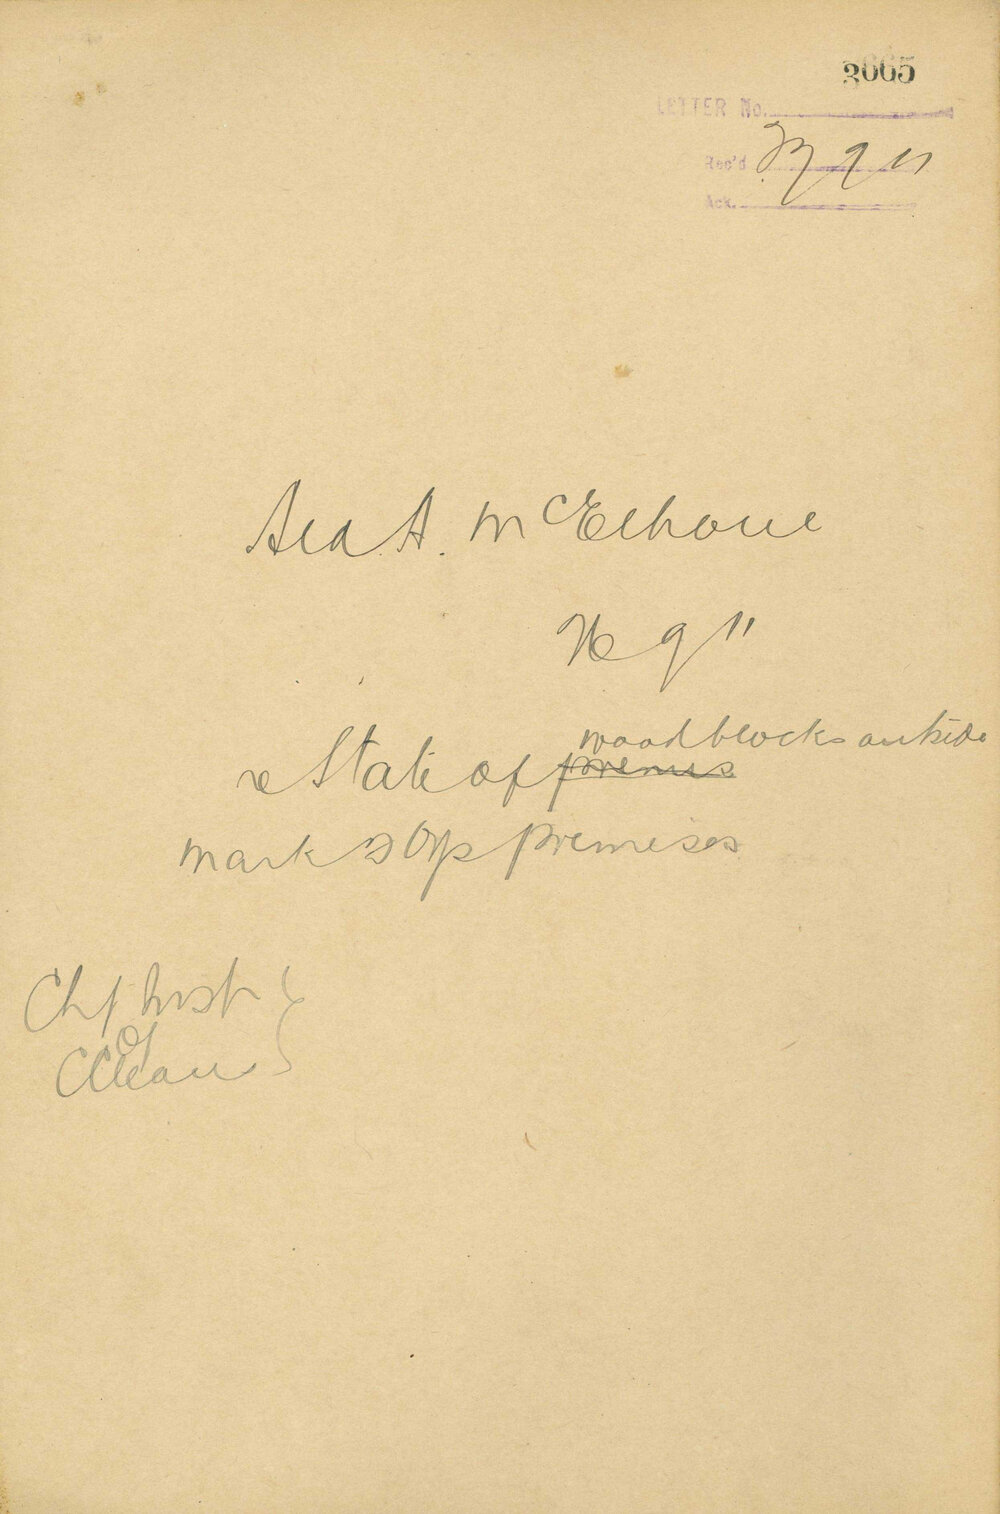 3665
LETTER No.
Rec'd 23 9 11
Ack.
Ald. A. McElhone
9 11
re State of premis woodblocks outside
Mark Foys premises
Ch f Insp
of
Clean